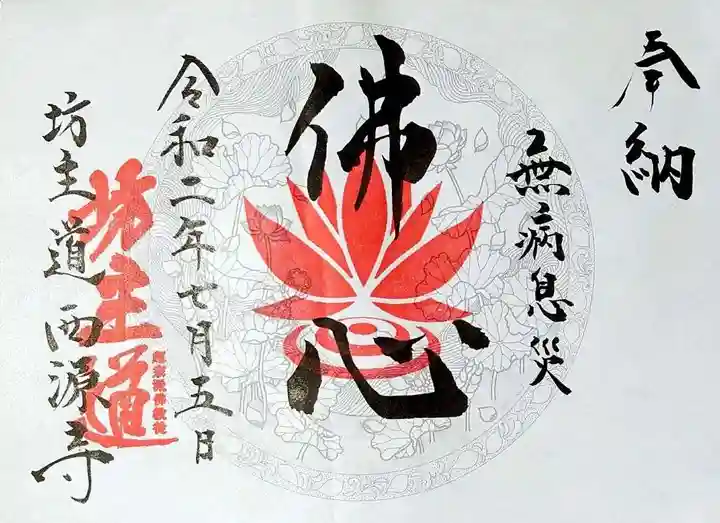 奉納
無病息災
佛心
令和二年七月五日
坊主道西源寺
坊主道